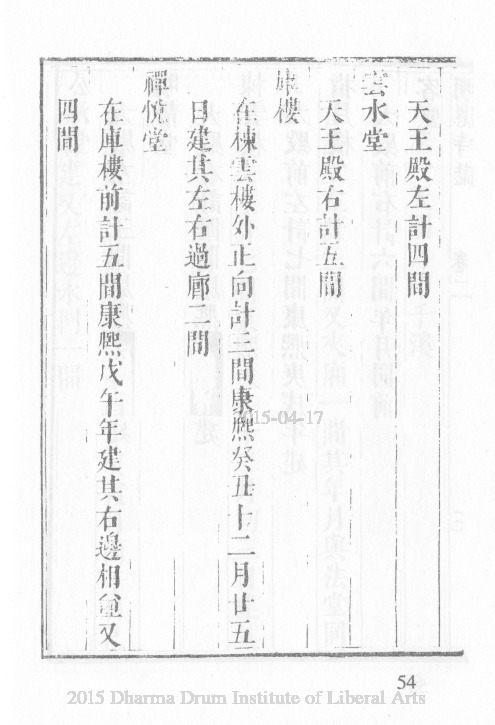 天王殿左計四間
雲水堂
天王殿右計五間
庫樓
在棟雲樓外正向計三間康熙癸丑十二月廿五
日建其左右過廊二間
禪悅堂
在庫樓前計五間康熙戊午年建其右邊相竝又
四間
2015-04-17
54
2015 Dharma Drum Institute of Liberal Arts